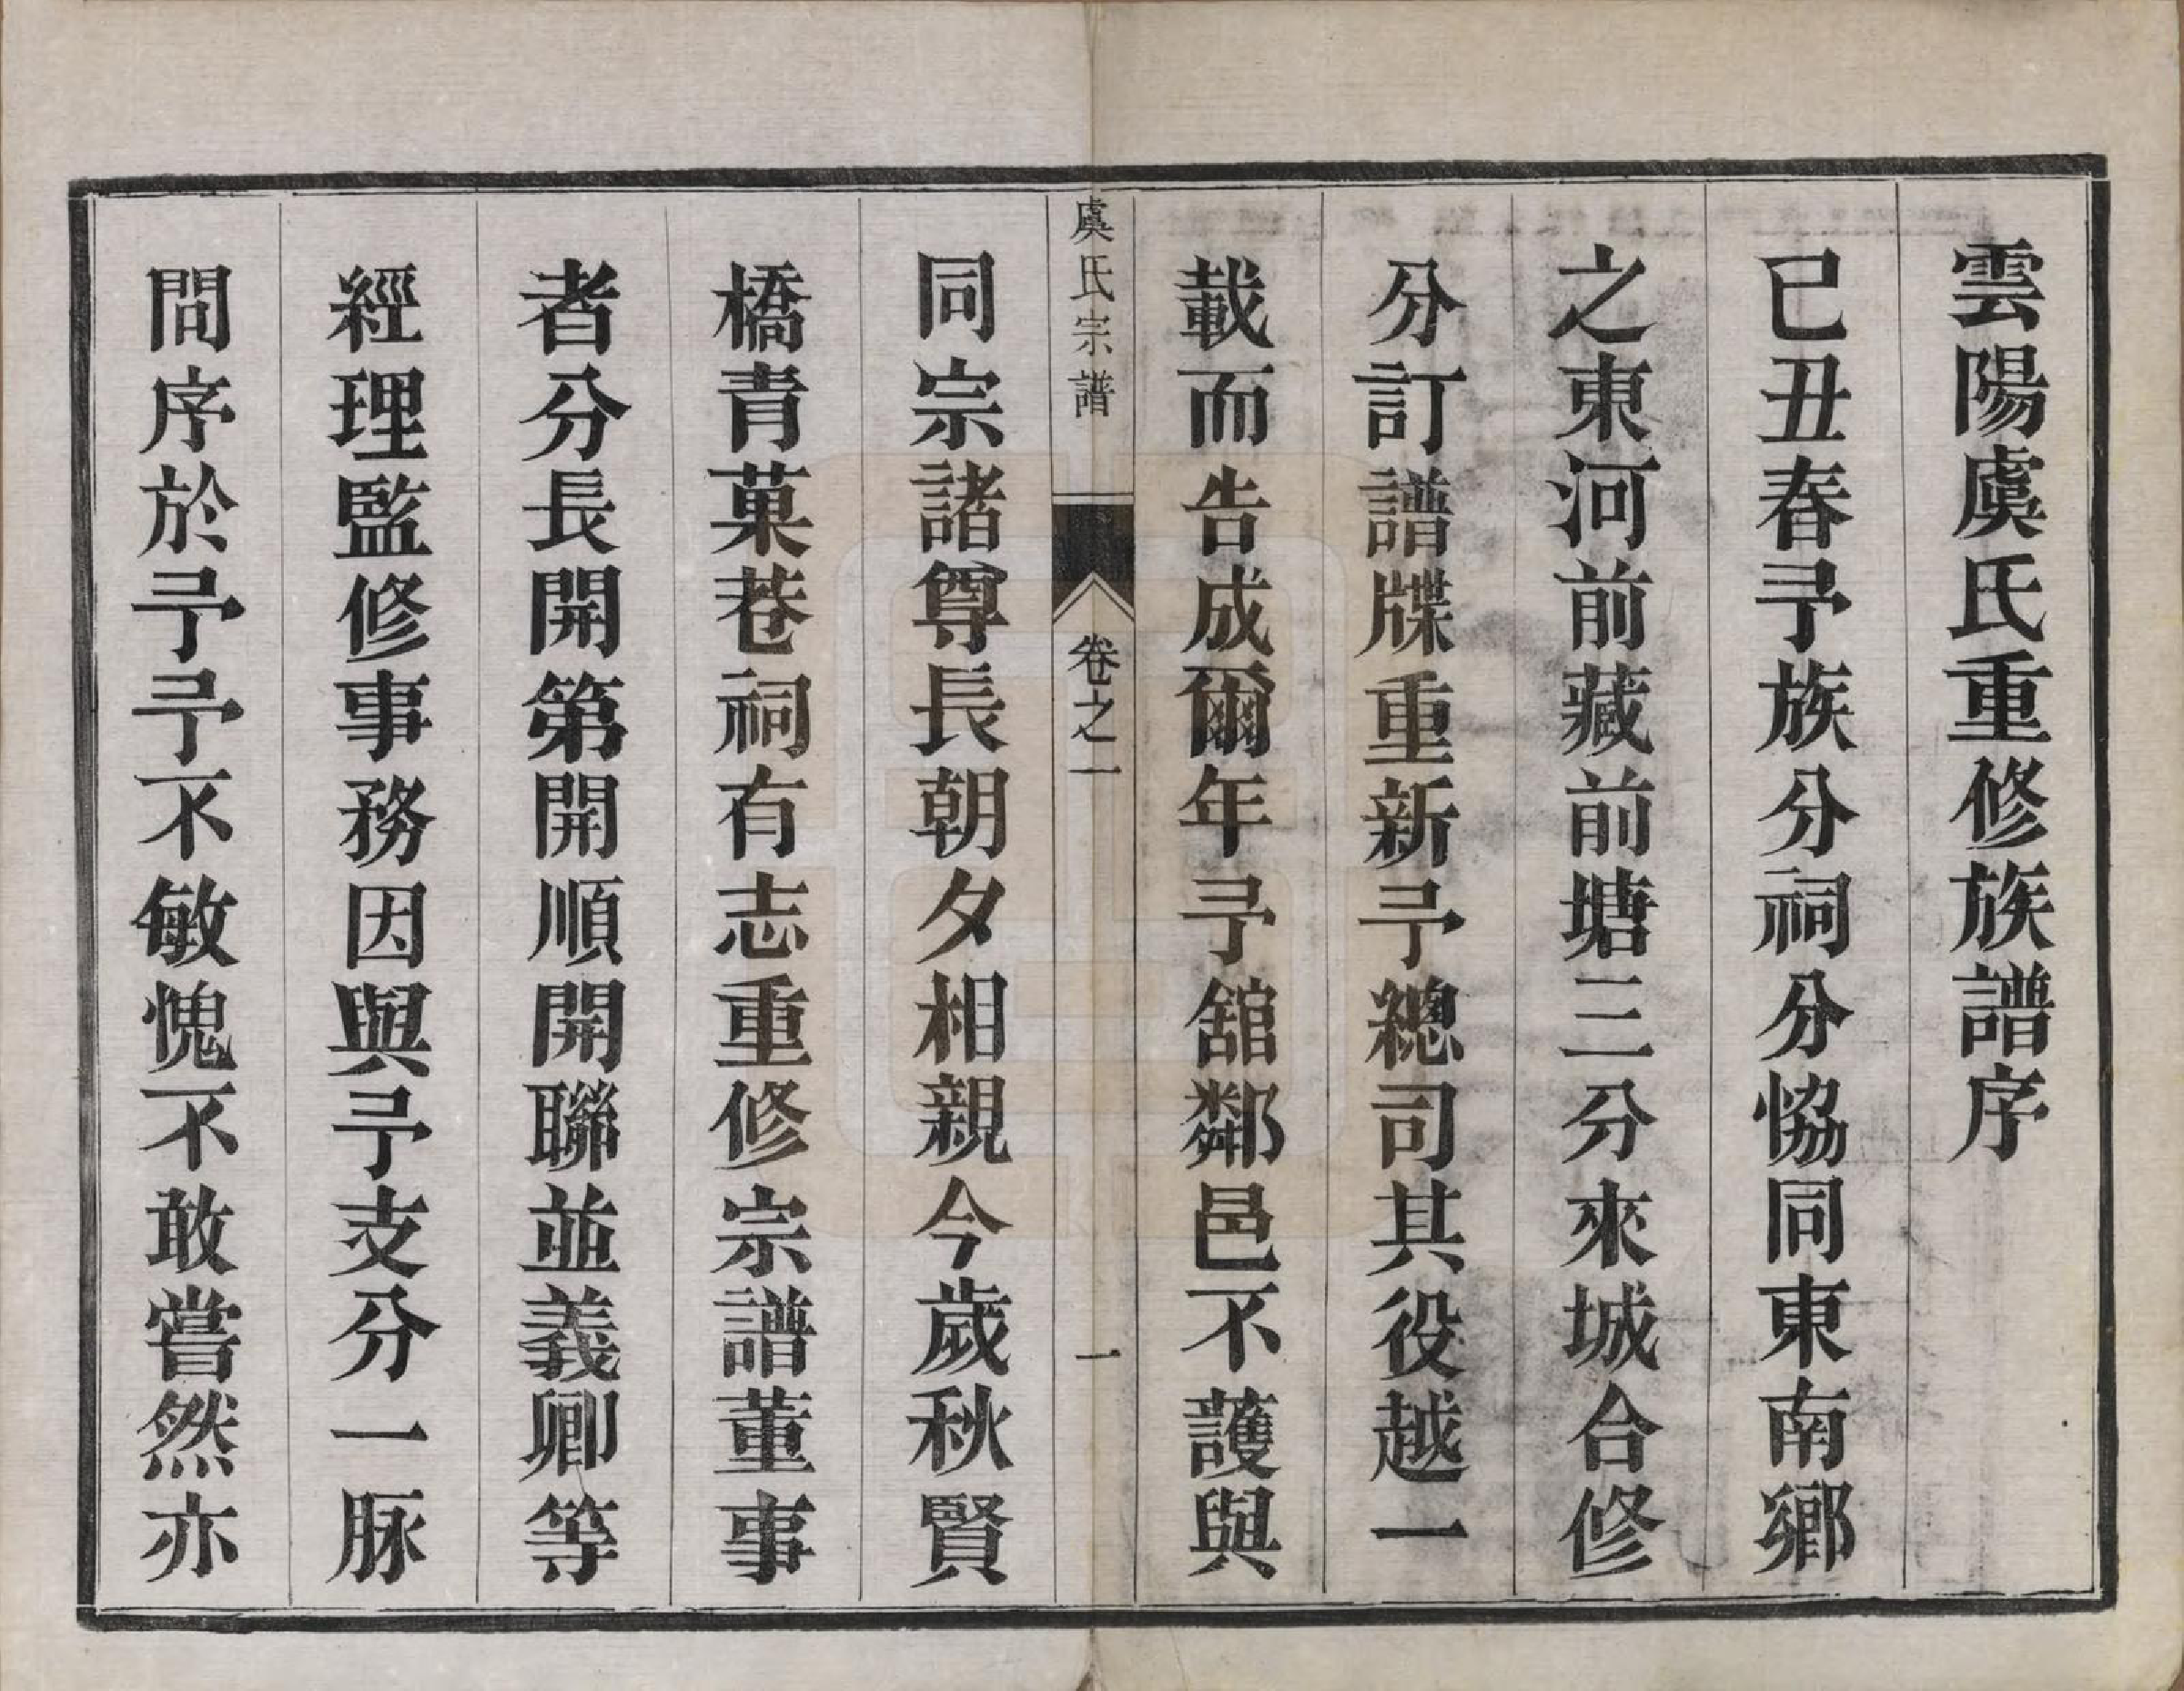 雲陽虞氏重修族譜序
己丑春予族分祠分恊同東南鄉
之東河前藏前塘三分來城合修
分訂譜牒重新予總司其役越一
載而告成爾年予舘鄰邑不護與
虞氏宗譜
卷之一
一
同宗諸尊長朝夕相親今歲秋賢
橋青菓巷祠有志重修宗譜董事
者分長開第開順開聯並義卿等
經理監修事務因與予支分一脉
問序於予予不敏愧不敢嘗然亦